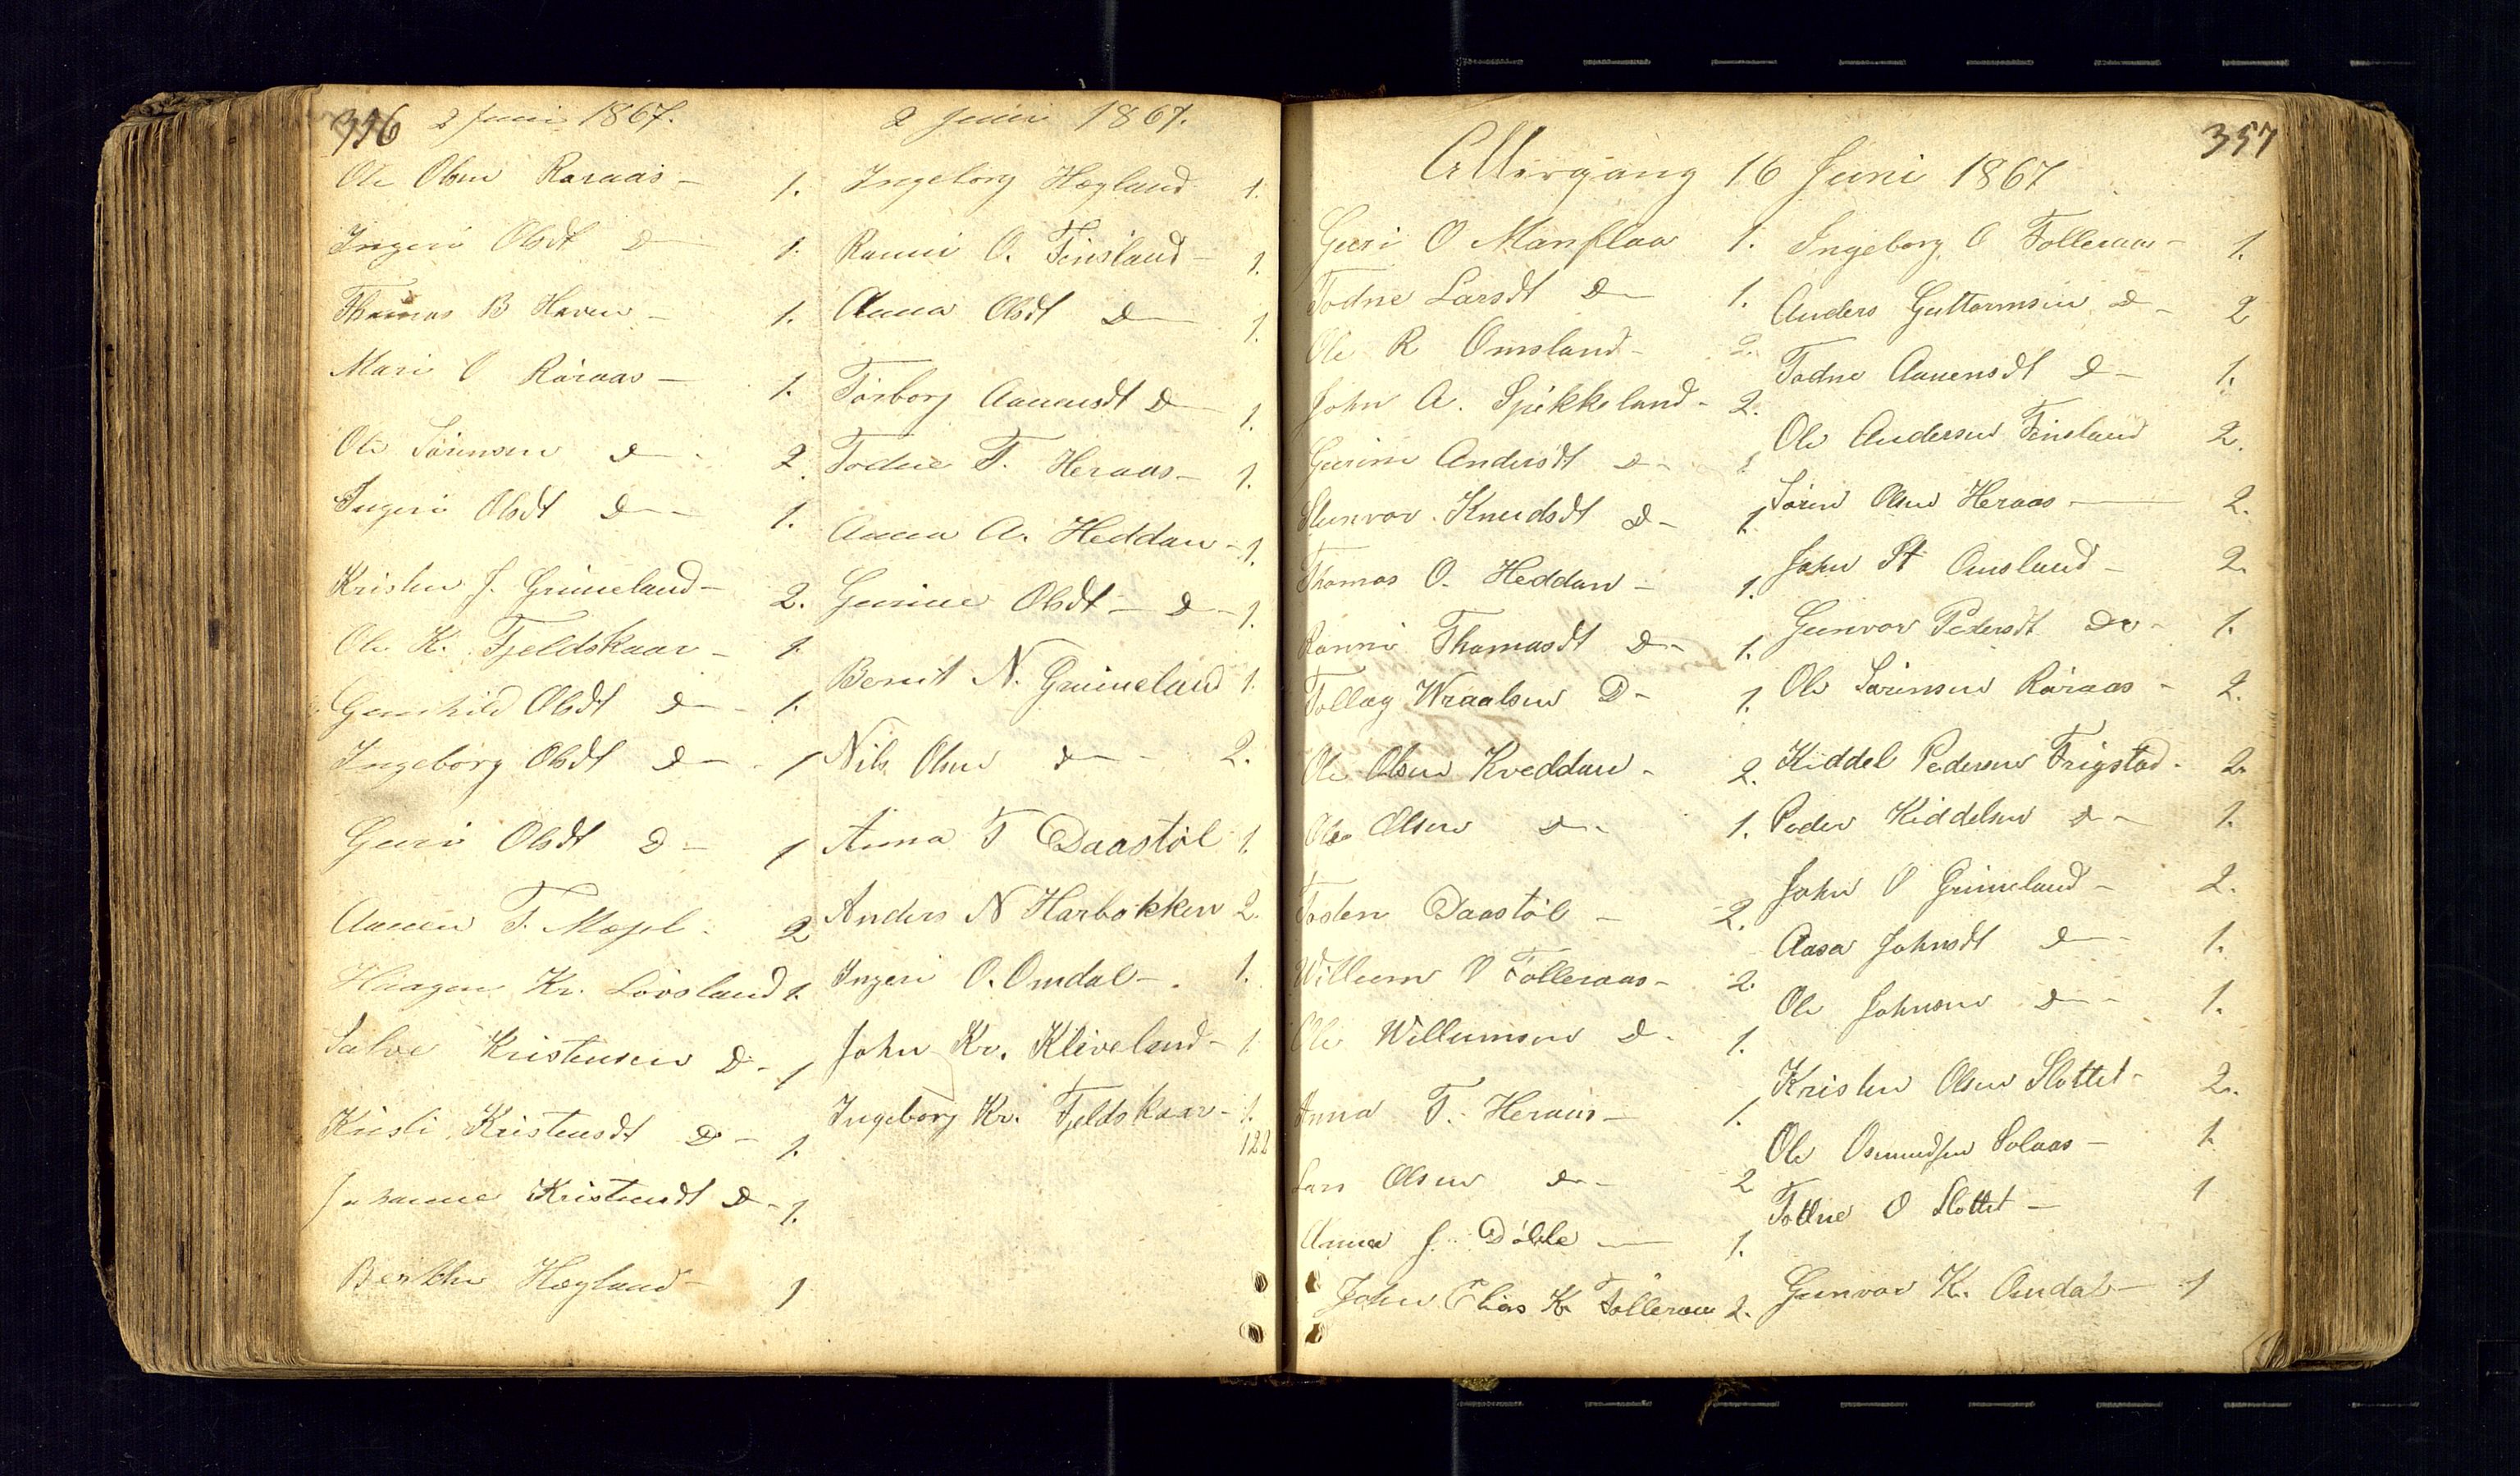 356
2 Juni 1867.
Ole Olsen Røraas – 1.
Ingeri Olsdt D – 1.
Thomas B Haven – 1.
Mari O Røraas – 1.
Ole Sørensen D – 2.
Ingeri Olsdt D – 1.
Kristen J. Grimeland – 2.
Ole K. Fjeldskaar – 1.
Gunhild Olsdt D – 1.
Ingeborg Olsdt D – 1
Guri Olsdt D – 1
Aanen T. 2
Haagen Kr. Løvsland 1.
Salve Kristensen D – 1
Kristi Kristensdt D – 1.
Johanne Kristensdt D – 1.
Berthe Høgland – 1
2 Juni 1867.
Ingeborg Høgland 1.
Ranni O. Finsland – 1.
Anna Olsdt D – 1.
Torborg Aanensdt D – 1.
Todne T. Heraas – 1.
Anna A. Heddan – 1.
Gurine Olsdt – D – 1.
Berit N. Grimeland 1.
Nils Olsen D – 2.
Anna T Daastøl 1.
Anders N Harbøkken 2.
Ingeri O. Omdal – 1.
John Kr. Kleveland – 1
Ingeborg Kr. Fjeldskaar – 1.
122
357
Altergang 16 Juni 1867
Guri O Manflaa 1.
Todne Larsdt D – 1.
Ole R Omsland – 2.
John A. Spikkeland – 2.
Gurine Andersdt D – 1
Gunvor Knudsdt D – 1
Thomas O. Heddan – 1.
Ranni Thomasdt D – 1.
Tollag Wraalsen D – 1.
Ole Olsen Kveddan – 2.
Ole Olsen D – 1.
Tosten Daastøl – 2.
Willum O Følleraas – 2.
Ole Willumsen D – 1.
Anna T. Heraas – 1.
Lars Olsen D – 2
Anna J. Dølle – 1.
John Elias K. Følleraas 2.
Ingeborg O Følleraas – 1.
Anders Guttormsen D – 2
Todne Aanensdt D – 1.
Ole Andersen Finsland 2.
Søren Olsen Heraas – 2.
John St Omsland – 2.
Gunvor Pedersdt Do – 1.
Ole Sørensen Røraas – 2.
Kiddel Pedersen Frigstad – 2.
Peder Kiddelsen D – 1.
John O Grimeland – 2.
Aasa Johnsdt D – 1.
Ole Johnsen D – 1.
Kristen Olsen Slottet – 2.
Ole Osmundsen Solaas – 1.
Todne O Slottet – 1
Gunvor K. Omdal – 1